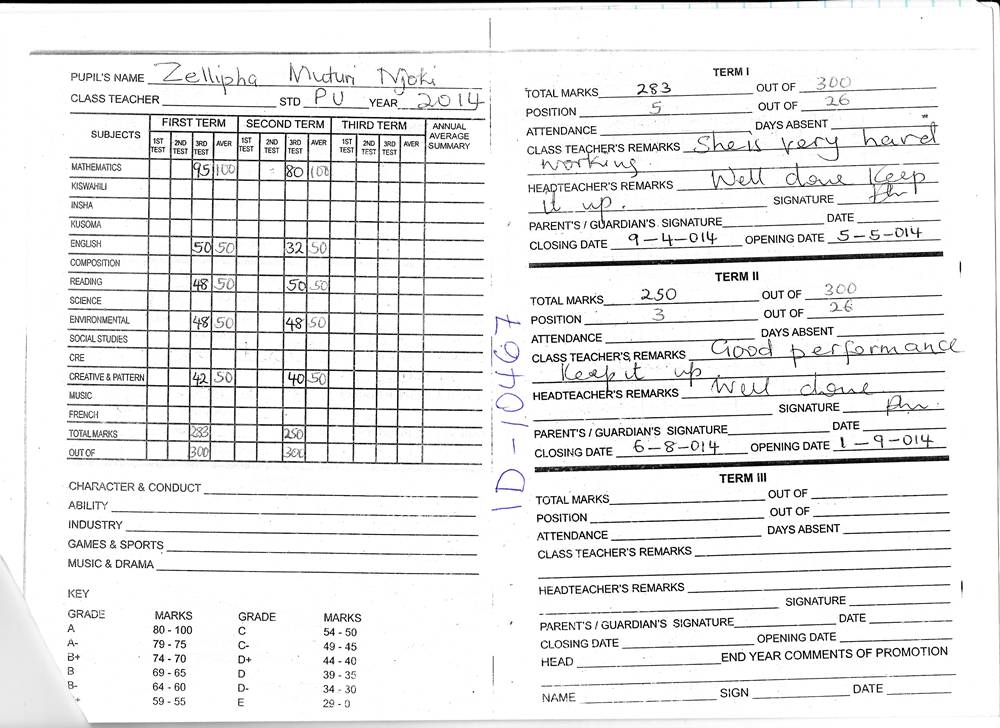 PUPIL'S NAME Zellipha Muturi Njoki
CLASS TEACHER STD PU YEAR 2014
SUBJECTS FIRST TERM SECOND TERM THIRD TERM ANNUAL AVERAGE SUMMARY
1ST TEST 2ND TEST 3RD TEST AVER 1ST TEST 2ND TEST 3RD TEST AVER 1ST TEST 2ND TEST 3RD TEST AVER
MATHEMATICS 95 100 80 100
KISWAHILI
INSHA
KUSOMA
ENGLISH 50 50 32 50
COMPOSITION
READING 48 50 50 50
SCIENCE
ENVIRONMENTAL 48 50 48 50
SOCIAL STUDIES
CRE
CREATIVE & PATTERN 42 50 40 50
MUSIC
FRENCH
TOTAL MARKS 283 250
OUT OF 300 300
CHARACTER & CONDUCT
ABILITY
INDUSTRY
GAMES & SPORTS
MUSIC & DRAMA
KEY
GRADE MARKS GRADE MARKS
A 80 - 100 C 54 - 50
A- 79 - 75 C- 49 - 45
B+ 74 - 70 D+ 44 - 40
B 69 - 65 D 39 - 35
B- 64 - 60 D- 34 - 30
59 - 55 E 29 - 0
ID-10467
TERM I
TOTAL MARKS 283 OUT OF 300
POSITION 5 OUT OF 26
ATTENDANCE DAYS ABSENT
CLASS TEACHER'S REMARKS She is very hard
working.
HEADTEACHER'S REMARKS Well done Keep
it up. SIGNATURE
PARENT'S / GUARDIAN'S SIGNATURE DATE
CLOSING DATE 9-4-014 OPENING DATE 5-5-014
TERM II
TOTAL MARKS 250 OUT OF 300
POSITION 3 OUT OF 26
ATTENDANCE DAYS ABSENT
CLASS TEACHER'S REMARKS Good performance
Keep it up.
HEADTEACHER'S REMARKS Well done
SIGNATURE
PARENT'S / GUARDIAN'S SIGNATURE DATE
CLOSING DATE 6-8-014 OPENING DATE 1-9-014
TERM III
TOTAL MARKS OUT OF
POSITION OUT OF
ATTENDANCE DAYS ABSENT
CLASS TEACHER'S REMARKS
HEADTEACHER'S REMARKS
SIGNATURE
PARENT'S / GUARDIAN'S SIGNATURE DATE
CLOSING DATE OPENING DATE
HEAD END YEAR COMMENTS OF PROMOTION
NAME SIGN DATE